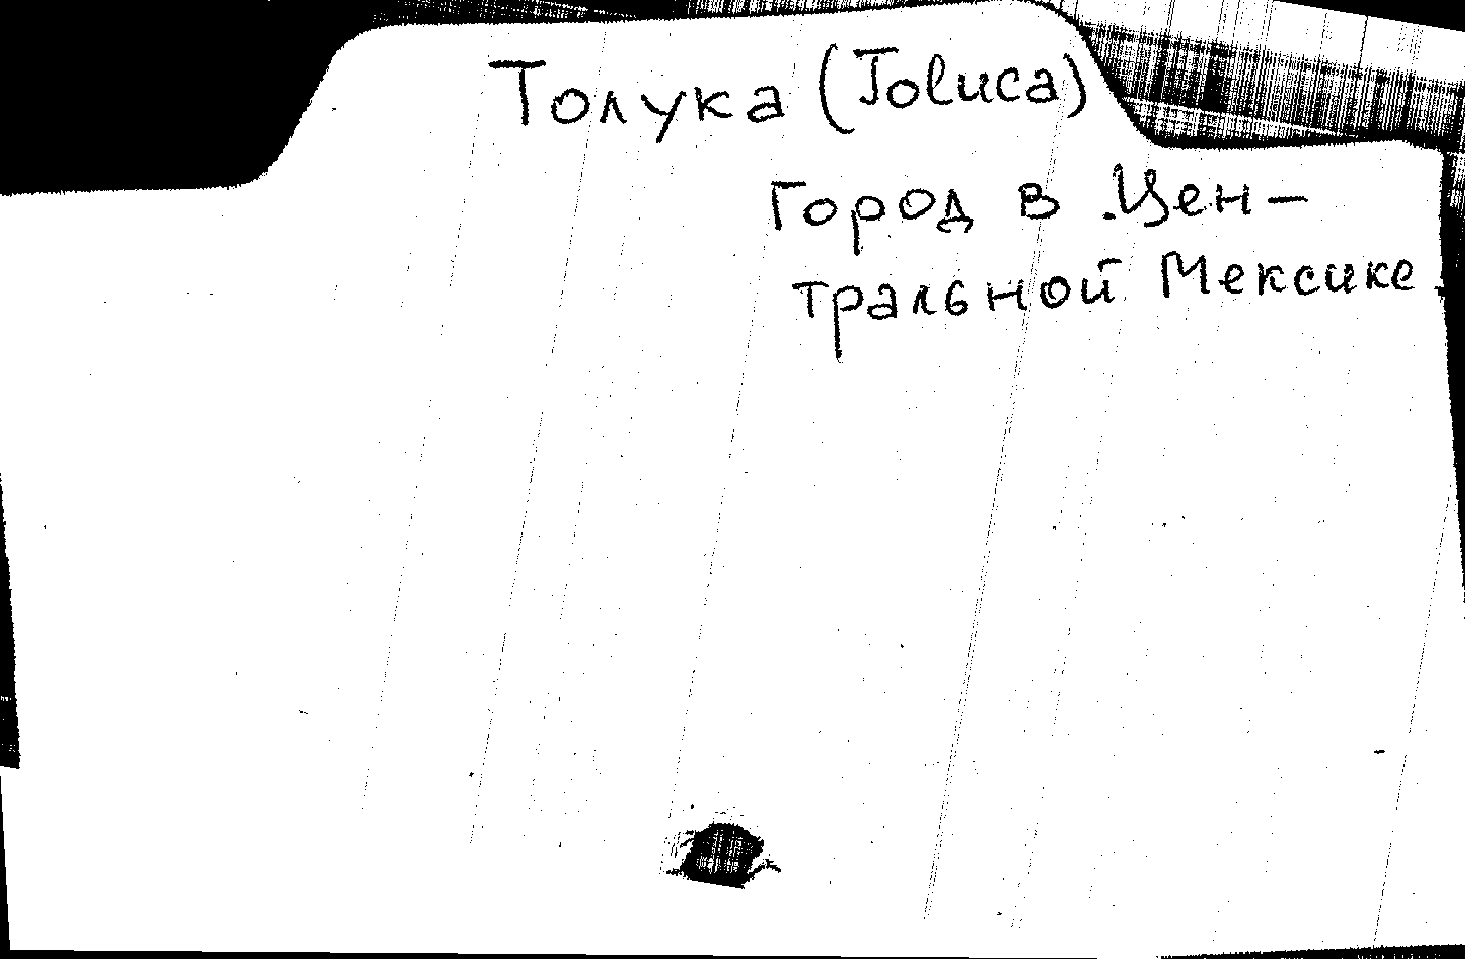 Толука (Toluca)
Город в Цен-
тральной Мексике.